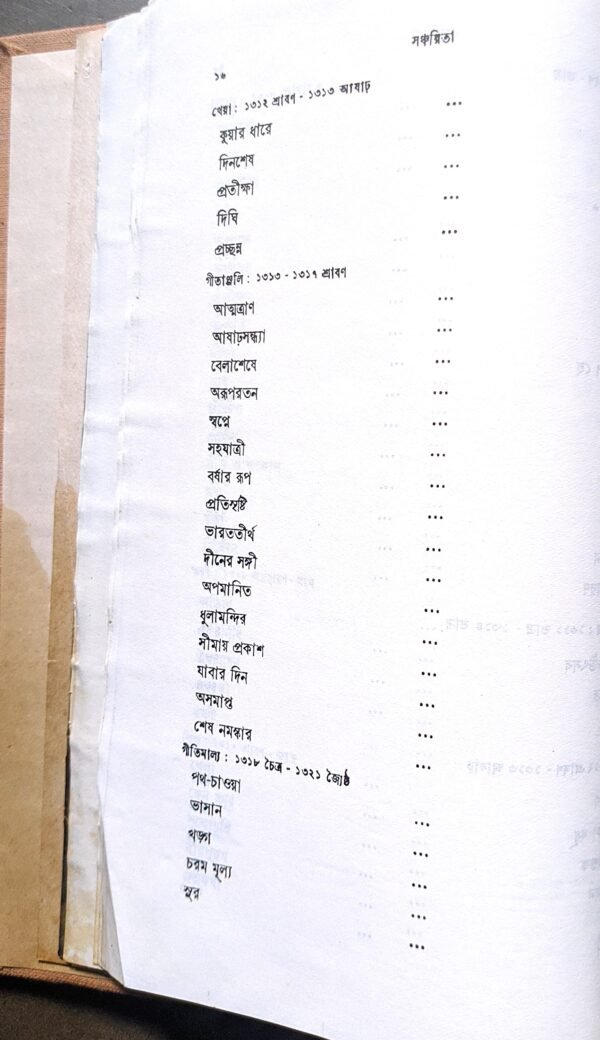 সঞ্চয়িতা
১৬
খেয়া : ১৩১২ শ্রাবণ - ১৩১৩ আষাঢ়
কুয়ার ধারে ...
দিনশেষ ...
প্রতীক্ষা ...
দিঘি ...
প্রচ্ছন্ন ...
গীতাঞ্জলি : ১৩১৩ - ১৩১৭ শ্রাবণ
আত্মত্রাণ ...
আষাঢ়সন্ধ্যা ...
বেলাশেষে ...
অরূপরতন ...
স্বপ্নে ...
সহযাত্রী ...
বর্ষার রূপ ...
প্রতিসৃষ্টি ...
ভারততীর্থ ...
দীনের সঙ্গী ...
অপমানিত ...
ধুলামন্দির ...
সীমায় প্রকাশ ...
যাবার দিন ...
অসমাপ্ত ...
শেষ নমস্কার ...
গীতিমাল্য : ১৩১৮ চৈত্র - ১৩২১ জ্যৈষ্ঠ
পথ-চাওয়া ...
ভাসান ...
খড়্গ ...
চরম মূল্য ...
সুর ...